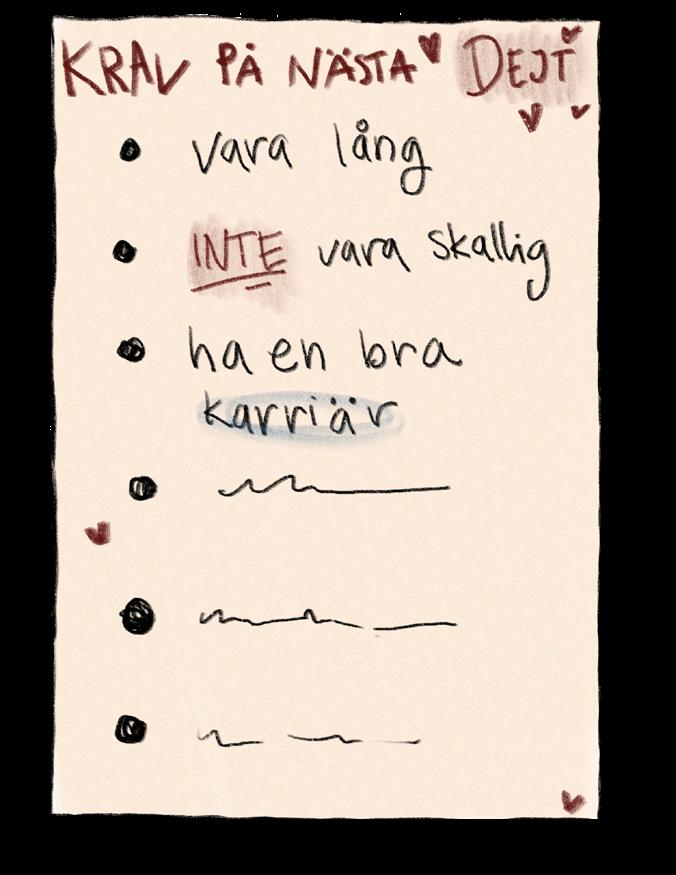 KRAV PÅ NÄSTA DEJT
vara lång
INTE vara skallig
ha en bra
karriär